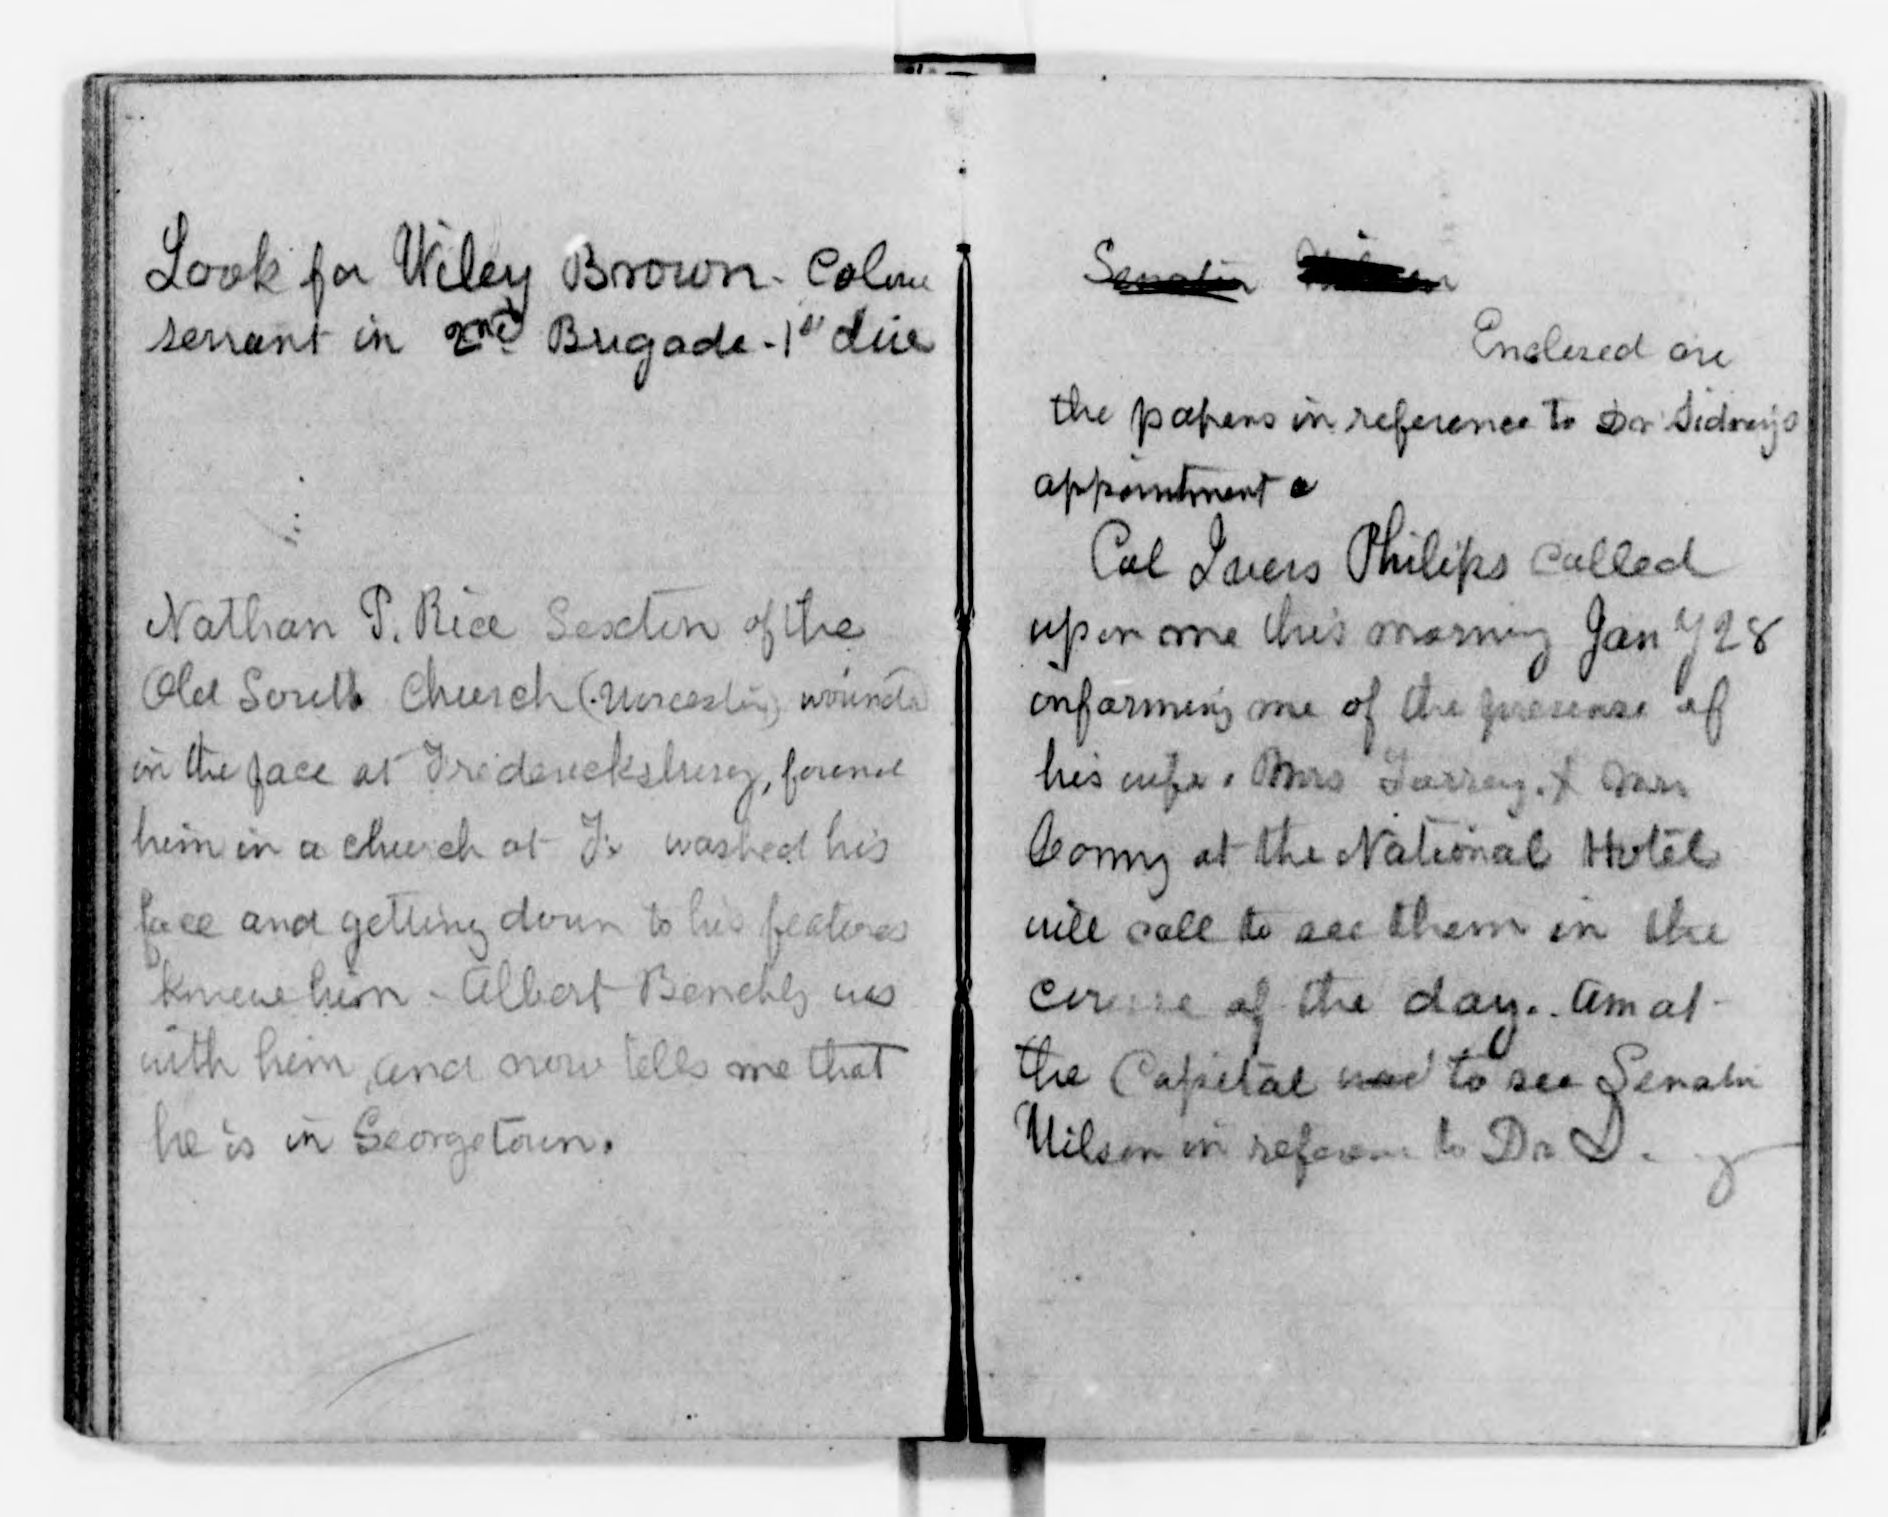 Look for Wiley Brown - Colou
servant in 2nd Brigade - 1st div
Nathan P. Rice Sexton of the
Old South Church (Worcester) wounded
in the face at Fredericksburg, found
him in a church at F. washed his
face and getting down to his features
knew him - Albert Benchly was
with him, and now tells me that
he is in Georgetown.
Senator Wilson
Enclosed are
the papers in reference to Dr Sidney's
appointment
Col Ivers Philips called
upon me this morning Jany 28
informing me of the presence of
his wife, Mrs Torrey. & Mrs
at the National Hotel
will call to see them in the
course of the day.. Am at
the Capital to see Senator
Wilson in reference to Dr S